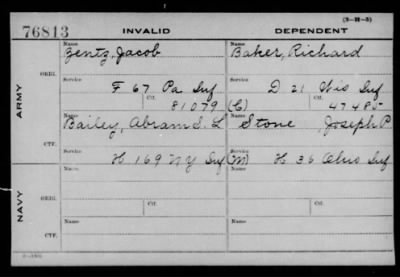 (3-28-5)
76813 INVALID DEPENDENT
ARMY
ORIG.
Name Zentz, Jacob Name Baker, Richard
Service F 67 Pa Inf Service D 21 Wis Inf
Ctf. 81079 (C) Ctf. 47485
CTF.
Name Bailey, Abram S. L Name Stone, Joseph P
Service H 169 NY Inf (M) Service H 36 Ohio Inf
NAVY
ORIG.
Name Name
Service Ctf. Service Ctf.
CTF.
Name Name